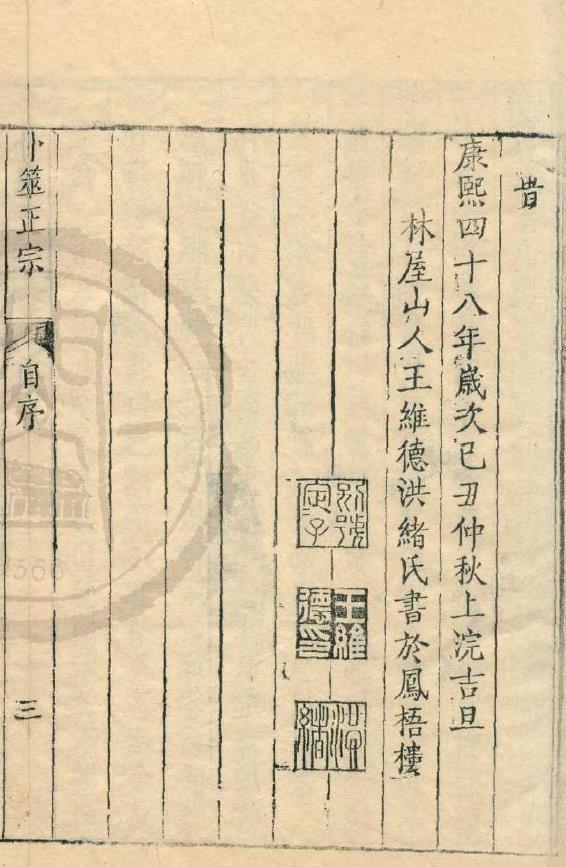 旹
康熙四十八年歲次己丑仲秋上浣吉旦
林屋山人王維德洪緒氏書於鳳梧樓
別號定子
王維德印
洪緒
卜筮正宗
自序
三